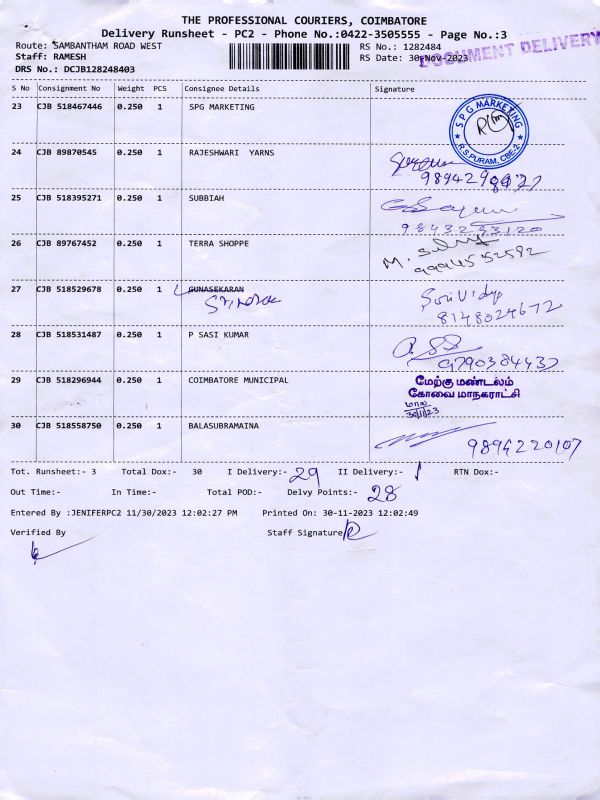 THE PROFESSIONAL COURIERS, COIMBATORE
Delivery Runsheet - PC2 - Phone No.:0422-3505555 - Page No.:3
Route: SAMBANTHAM ROAD WEST RS No.: 1282484
Staff: RAMESH RS Date: 30-Nov-2023
DOCUMENT DELIVERY
DRS No.: DCJB128248403
S No Consignment No Weight PCS Consignee Details Signature
23 CJB 518467446 0.250 1 SPG MARKETING
SPG MARKETING
R.S.PURAM, CBE-2
24 CJB 89870545 0.250 1 RAJESHWARI YARNS
25 CJB 518395271 0.250 1 SUBBIAH
9843233120
26 CJB 89767452 0.250 1 TERRA SHOPPE
9994552592
27 CJB 518529678 0.250 1 GUNASEKARAN
Sri Vidya
8148024672
28 CJB 518531487 0.250 1 P SASI KUMAR
9790384437
29 CJB 518296944 0.250 1 COIMBATORE MUNICIPAL
மேற்கு மண்டலம்
கோவை மாநகராட்சி
30/11/23
30 CJB 518558750 0.250 1 BALASUBRAMAINA
9894220107
Tot. Runsheet:- 3 Total Dox:- 30 I Delivery:- 29 II Delivery:- RTN Dox:-
Out Time:- In Time:- Total POD:- Delvy Points:- 28
Entered By :JENIFERPC2 11/30/2023 12:02:27 PM Printed On: 30-11-2023 12:02:49
Verified By Staff Signature